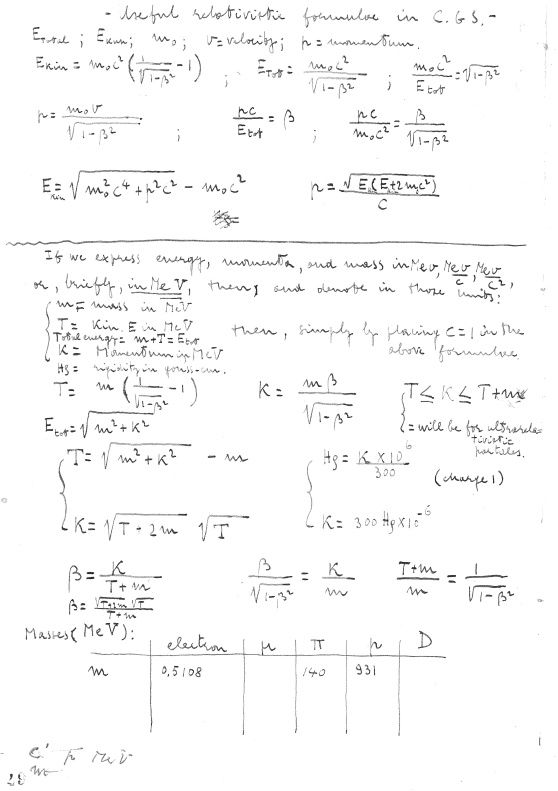 - Useful relativistic formulae in C.G.S. -
E_Total ; E_kin ; m₀ ; v = velocity ; p = momentum.
E_kin = m₀c² (1/√(1-β²) - 1) ; E_Tot = m₀c²/√(1-β²) ; m₀c²/E_tot = √(1-β²)
p = m₀v/√(1-β²) ; pc/E_tot = β ; pc/m₀c² = β/√(1-β²)
E_kin = √(m₀²c⁴ + p²c²) - m₀c² p = √(E(E+2m₀c²))/C
If we express energy, momenta, and mass in MeV, MeV/c, MeV/c²,
or, briefly, in MeV, then, and denote in those units:
m = mass in MeV
T = Kin. E in MeV
Total energy = m+T = E_tot
then, simply by placing C=1 in the
K = Momentum in MeV
above formulae.
Hρ = rigidity in gauss-cm.
T = m (1/√(1-β²) - 1) K = mβ/√(1-β²) T ≤ K ≤ T+m
E_tot = √(m²+K²)
= will be for ultrarelativistic particles.
T = √(m²+K²) - m Hρ = K×10⁶/300 (charge 1)
K = √(T+2m) √T K = 300 Hρ×10⁻⁶
β = K/(T+m) β/√(1-β²) = K/m (T+m)/m = 1/√(1-β²)
β = √(T+2m) √T/(T+m)
Masses (MeV):
electron μ π p D
m 0,5108 140 931
MeV